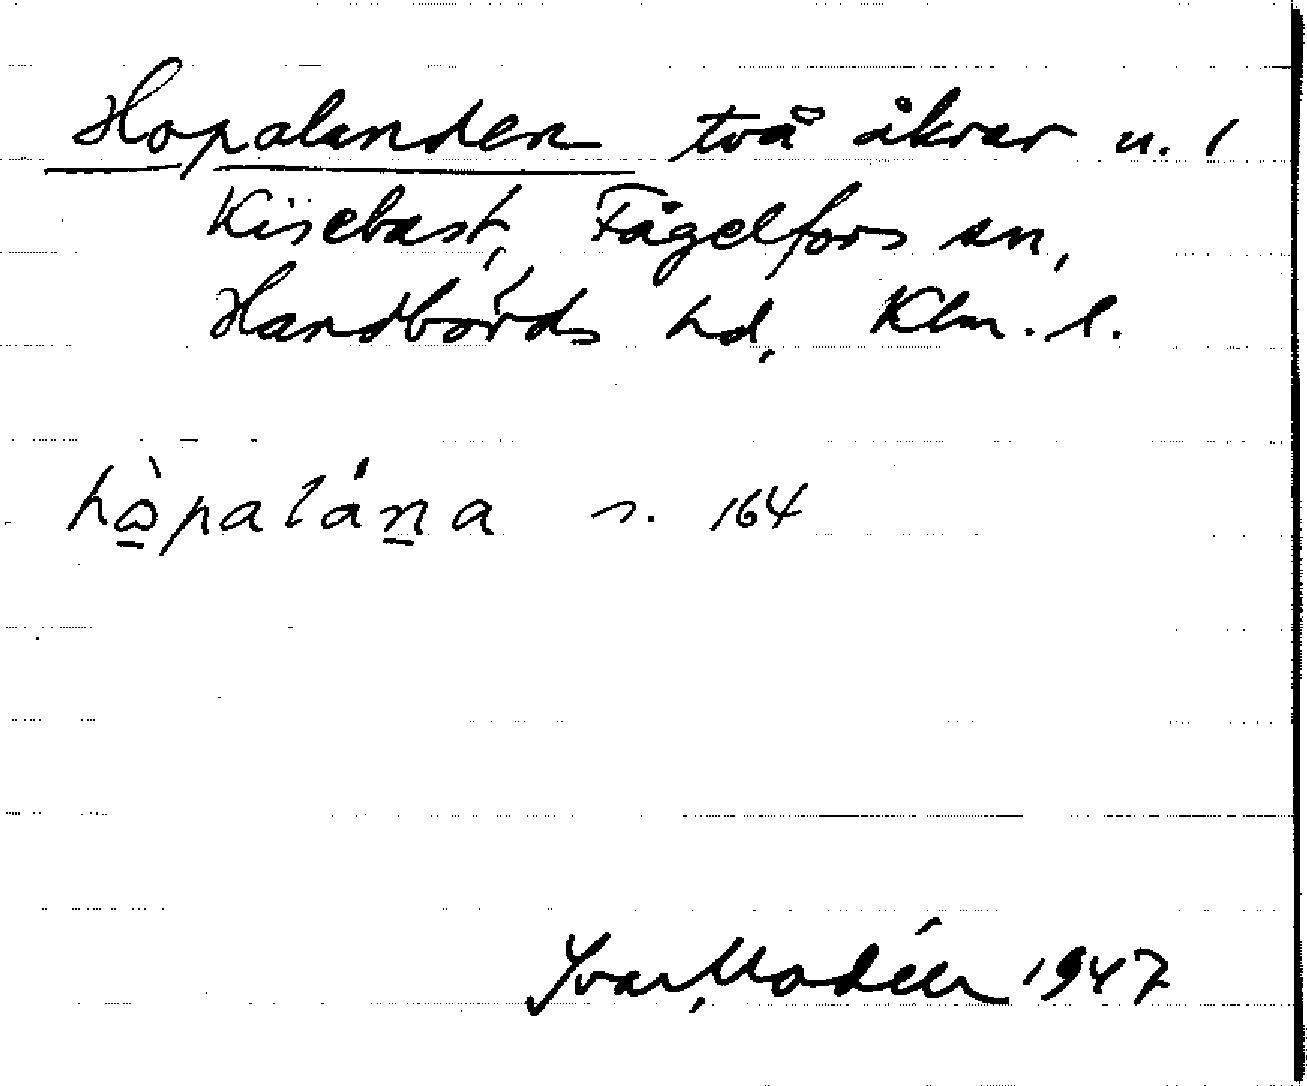 Hopalanden två åkrar u. 1
Kisebast, Fågelfors sn,
Handbörds hd, Klm. l.
hòpalána s. 164
Ivar Modéer 1947